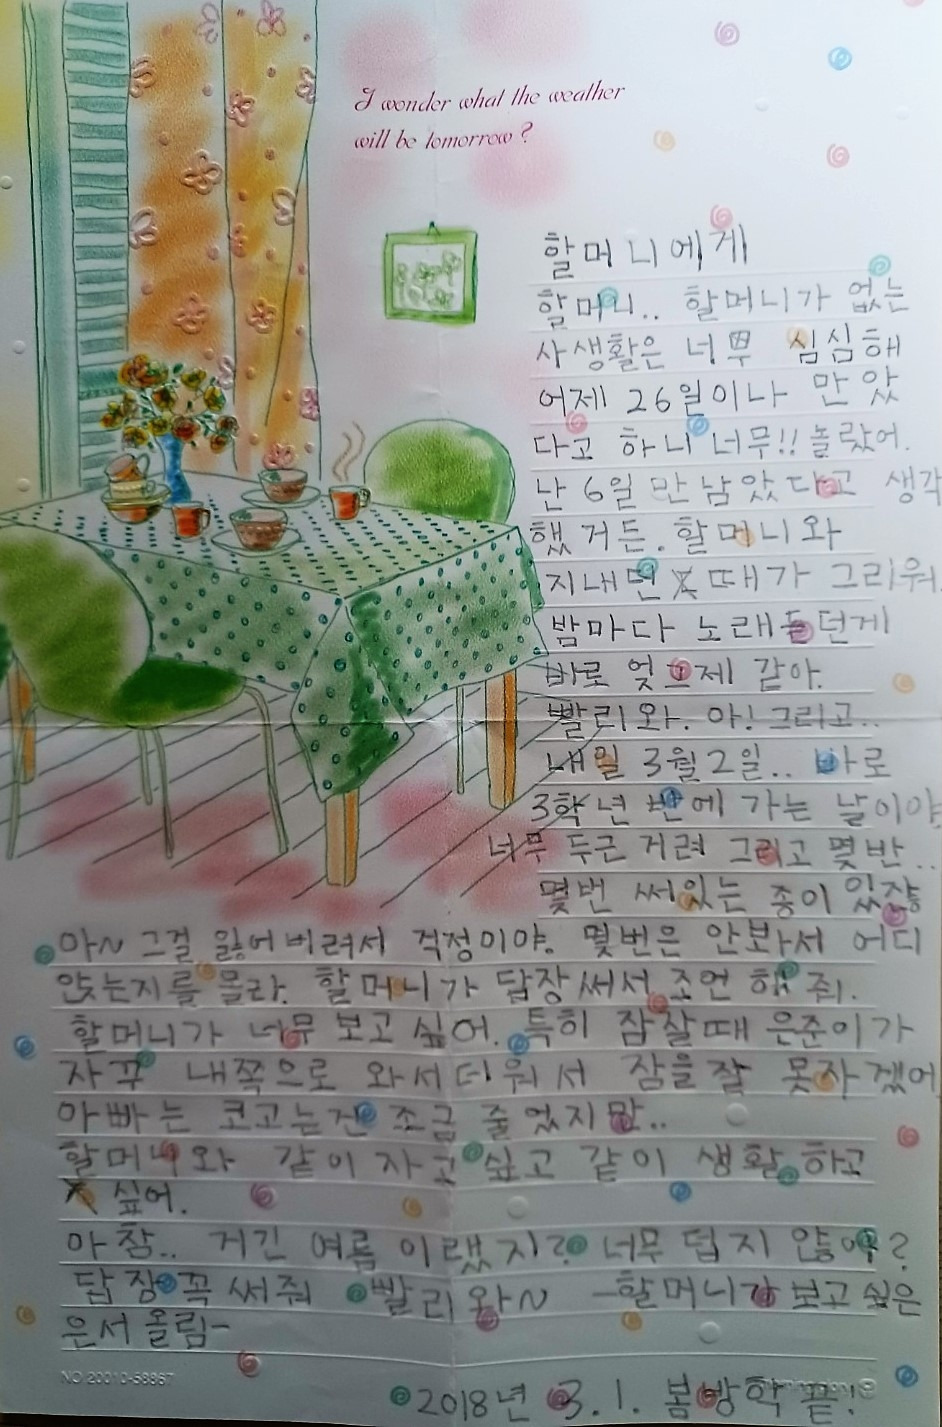 I wonder what the weather
will be tomorrow?
할머니에게
할머니.. 할머니가 없는
사생활은 너무 심심해
어제 26일이나 만 았
다고 하니 너무!! 놀랐어.
난 6일 만 남았 다고 생각
했 거든. 할머니와
지내던 때가 그리워
밤마다 노래듣던게
바로 엊그제 같아.
빨리와. 아! 그리고..
내일 3월 2일.. 바로
3학년 반에 가는 날이야
너무 두근 거려 그리고 몇반..
몇번 써있는 종이 있쟎
아~ 그걸 잃어버려서 걱정이야. 몇번은 안보아서 어디
앉는지를 몰라. 할머니가 답장써서 조언 해 줘.
할머니가 너무 보고 싶어. 특히 잠잘때 은준이가
자꾸 내쪽으로 와서 더워서 잠을 잘 못자겠어
아빠는 코고는건 조금 줄었지만..
할머니와 같이 자고 싶고 같이 생활 하고
싶어.
아참.. 거긴 여름 이랬지? 너무 덥지 않아?
답장 꼭 써줘 빨리와~ -할머니가 보고싶은
은서 올림-
NO 20010-58867
2018년 3.1. 봄방학 끝!